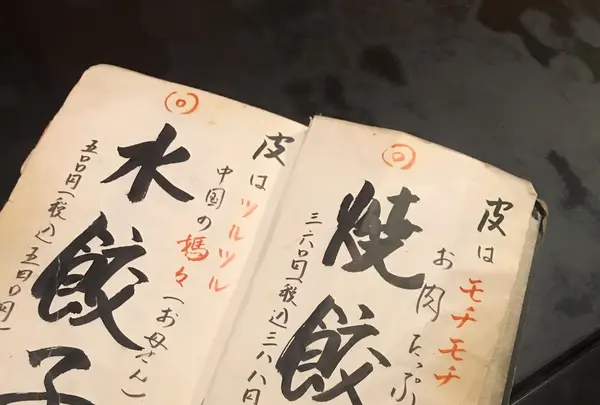 皮はモチモチ
お肉たっぷ
焼餃
三六〇円(税込三八八円
皮はツルツル
中国の媽々(お母さん)
水餃子
五〇〇円(税込五四〇円)